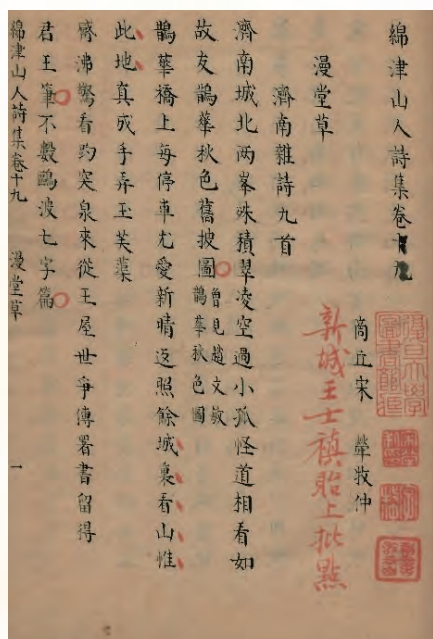 綿津山人詩集卷十九
商丘宋 犖牧仲
新城王士禛貽上批點
漫堂草
濟南雜詩九首
濟南城北两峯殊積翠凌空過小孤怪道相看如
故友鵲華秋色舊披圖曾見趙文敏鵲華秋色圖
鵲華橋上每停車尤愛新晴返照餘城裏看山惟
此地真成手弄玉芙蕖
觱沸驚看趵突泉來從王屋世爭傳署書留得
君王筆不數鷗波七字篇
綿津山人詩集卷十九 漫堂草 一
復旦大學圖書館藏